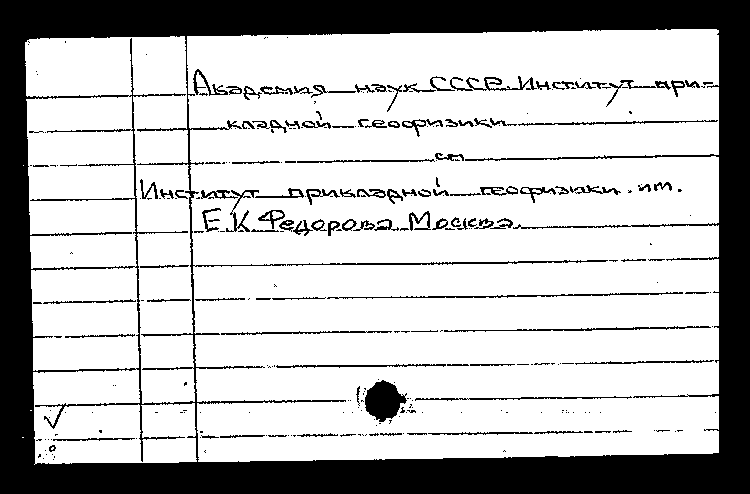 Академия наук СССР. Институт при-
кладной геофизики
см
Институт прикладной геофизики. им.
Е.К. Федорова Москва.